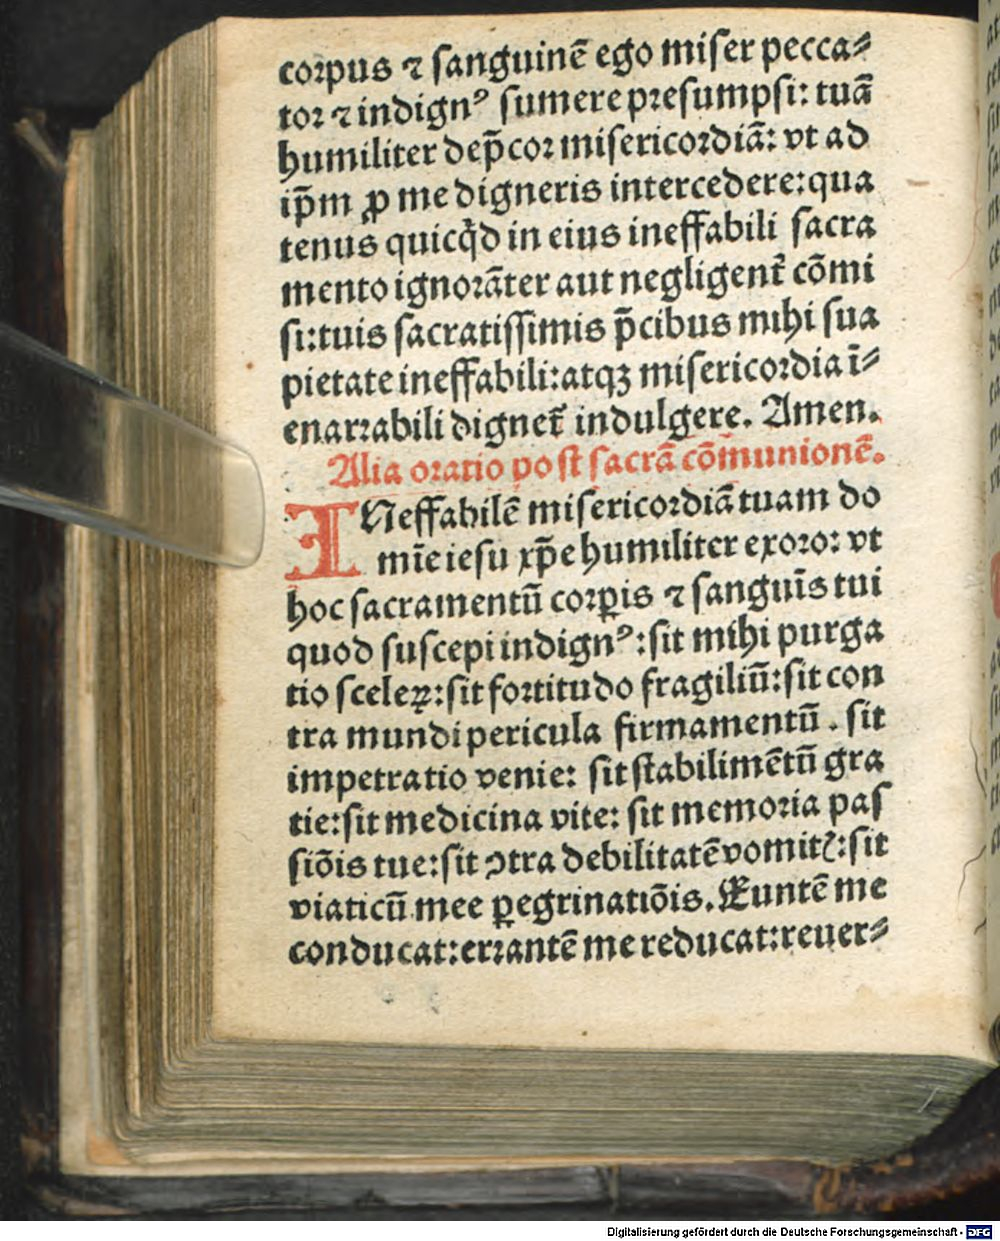 corpus ⁊ ſanguinē ego miſer pecca⸗
tor ⁊ indignꝰ ſumere preſumpſi: tuā
humiliter dep̄cor miſericordiā: vt ad
ip̄m ꝓ me digneris intercedere: qua
tenus quicq̇d in eius ineffabili ſacra
mento ignorāter aut negligent̄ cōmi
ſi: tuis ſacratiſſimis p̄cibus mihi ſua
pietate ineffabili: atqꝫ miſericordia ī⸗
enarrabili dignet̄ indulgere. Amen.
Alia oratio poſt ſacrā cōmunionē.
INeffabilē miſericordiā tuam do
mīe ieſu xp̄e humiliter exoro: vt
hoc ſacramentū corꝑis ⁊ ſanguīs tui
quod ſuſcepi indignꝰ: ſit mihi purga
tio ſceleꝝ: ſit fortitudo fragiliū: ſit con
tra mundi pericula firmamentū. ſit
impetratio venie: ſit ſtabilimētū gra
tie: ſit medicina vite: ſit memoria paſ
ſiōis tue: ſit ↄtra debilitatē vomitꝭ: ſit
viaticū mee ꝑegrinatiōis. Euntē me
conducat: errantē me reducat: reuer⸗
Digitalisierung gefördert durch die Deutsche Forschungsgemeinschaft - DFG